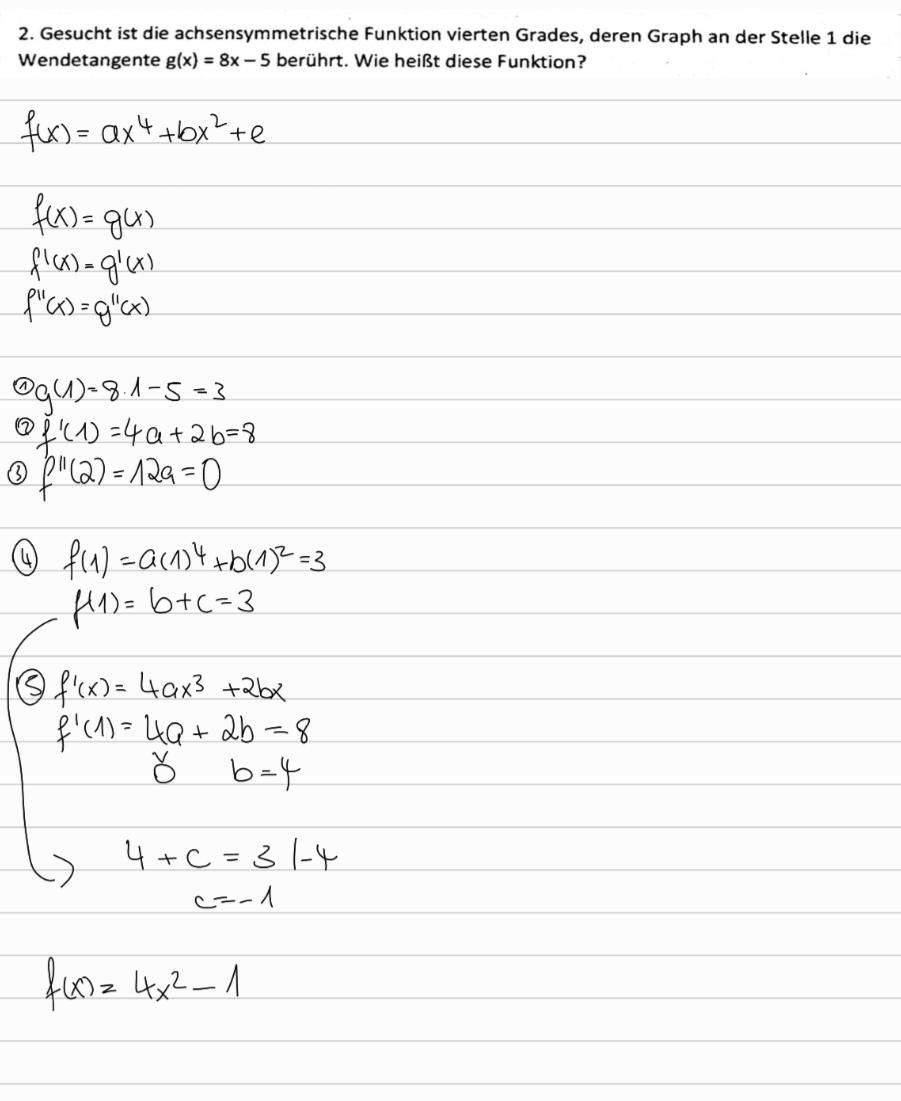 2. Gesucht ist die achsensymmetrische Funktion vierten Grades, deren Graph an der Stelle 1 die
Wendetangente g(x) = 8x – 5 berührt. Wie heißt diese Funktion?
f(x) = ax⁴ + bx² + e
f(x) = g(x)
f'(x) = g'(x)
f''(x) = g''(x)
① g(1) = 8·1 – 5 = 3
② f'(1) = 4a + 2b = 8
③ f''(2) = 12a = 0
④ f(1) = a(1)⁴ + b(1)² = 3
f(1) = b + c = 3
⑤ f'(x) = 4ax³ + 2bx
f'(1) = 4a + 2b = 8
0 b = 4
4 + c = 3 |-4
c = -1
f(x) = 4x² – 1